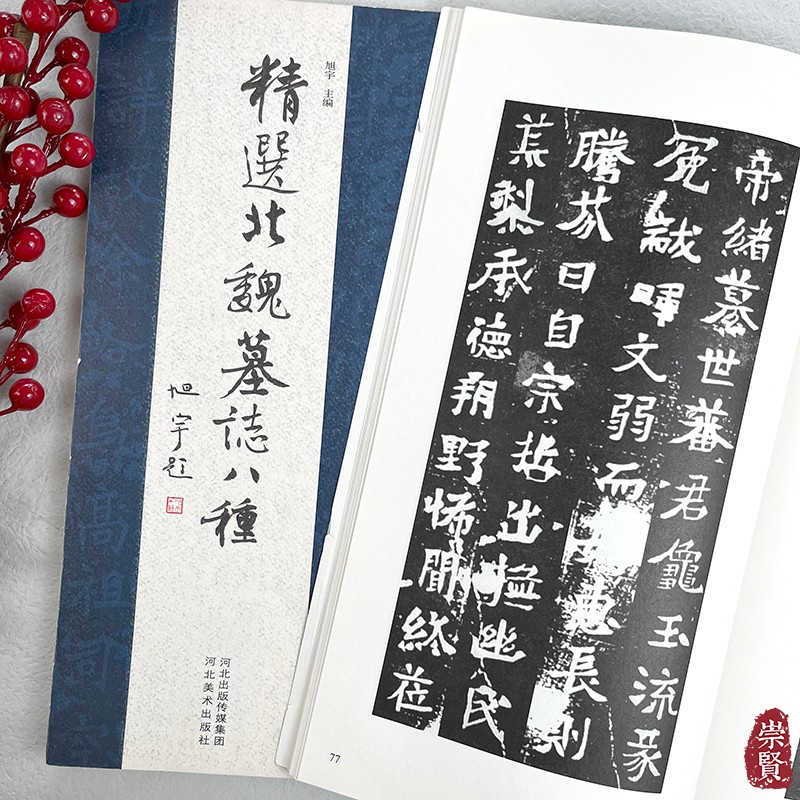 旭宇 主编
精選北魏墓誌八種
旭宇题
河北出版传媒集团
河北美术出版社
帝緒世蕃君龜玉流
冕黻暉文弱而惠長則
騰芬曰自宗哲出捴幽民
梨承德朔野怖聞終莅
77
崇賢